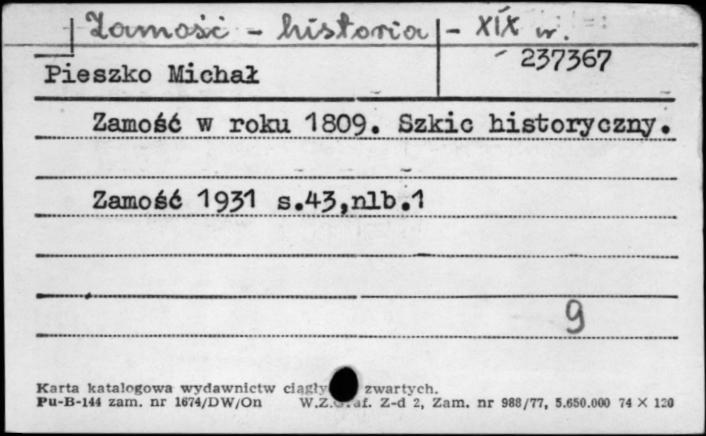 Zamość - historia - XIX w.
237367
Pieszko Michał
Zamość w roku 1809. Szkic historyczny.
Zamość 1931 s.43,nlb.1
9
Karta katalogowa wydawnictw zwartych.
Pu-B-144 zam. nr 1674/DW/On Z-d 2, Zam. nr 988/77, 5.650.000 74 X 120